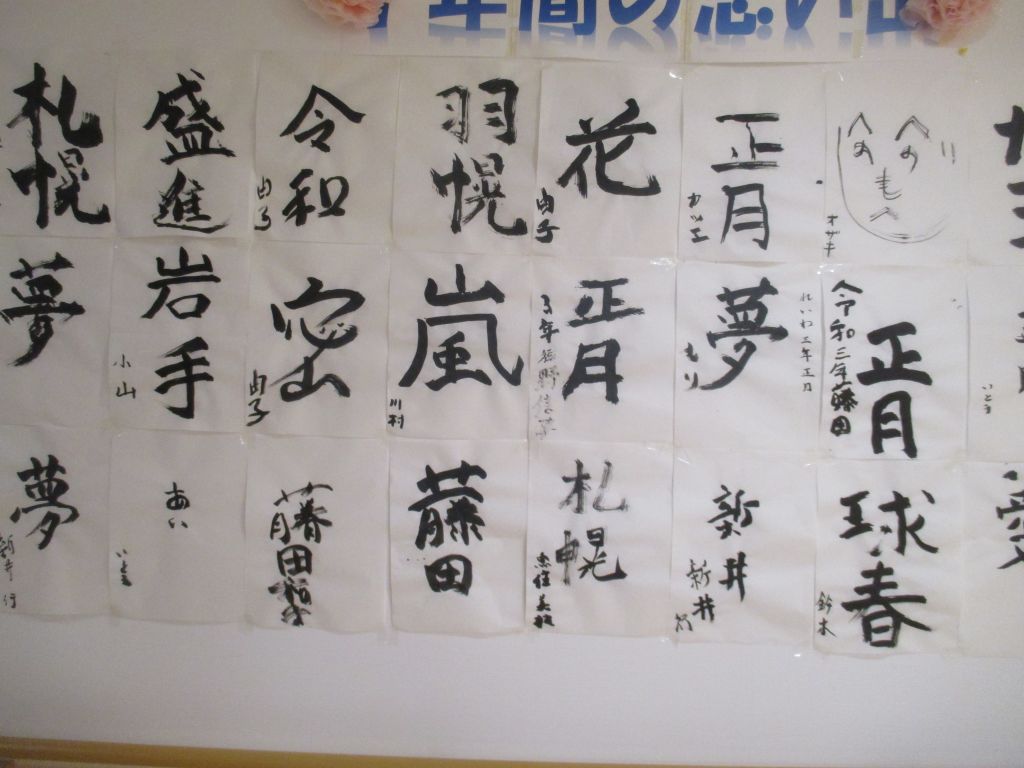 年間の思い出
札幌
盛進
令和
由子
羽幌
花
由子
正月
カツエ
へへ
のの
も
へ
オザキ
夢
小山
岩手
由子
嵐
川村
正月
夢
もり
れいわ三年正月
正月
令和三年藤田
いとう
夢
新井
あい
いとう
藤田
藤田
札幌
新井
新井
球春
鈴木
愛